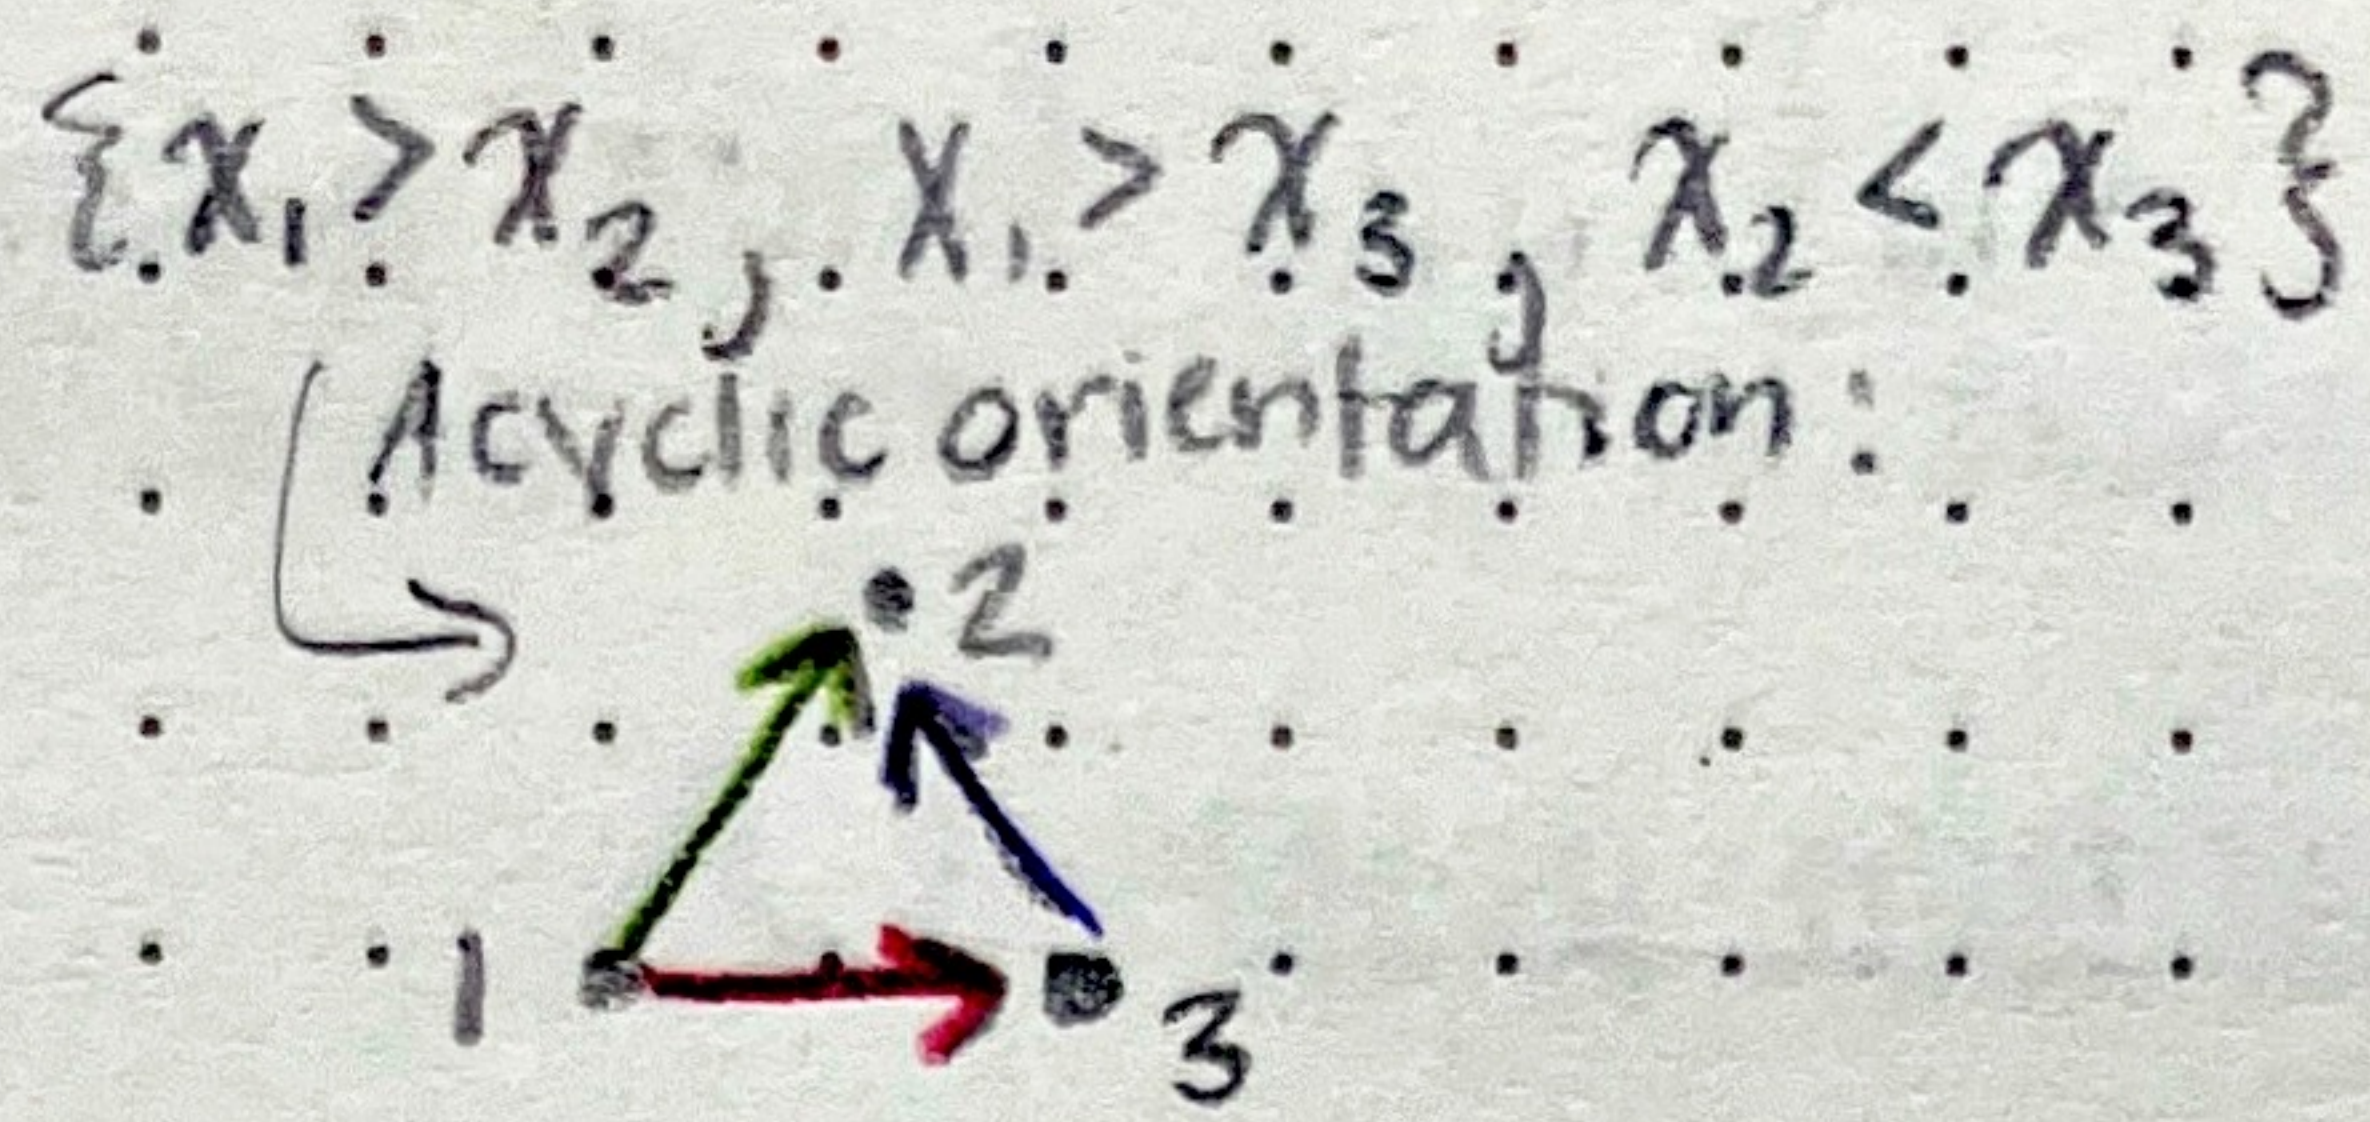 {x₁ > x₂, x₁ > x₃, x₂ < x₃}
Acyclic orientation:
2
1
3